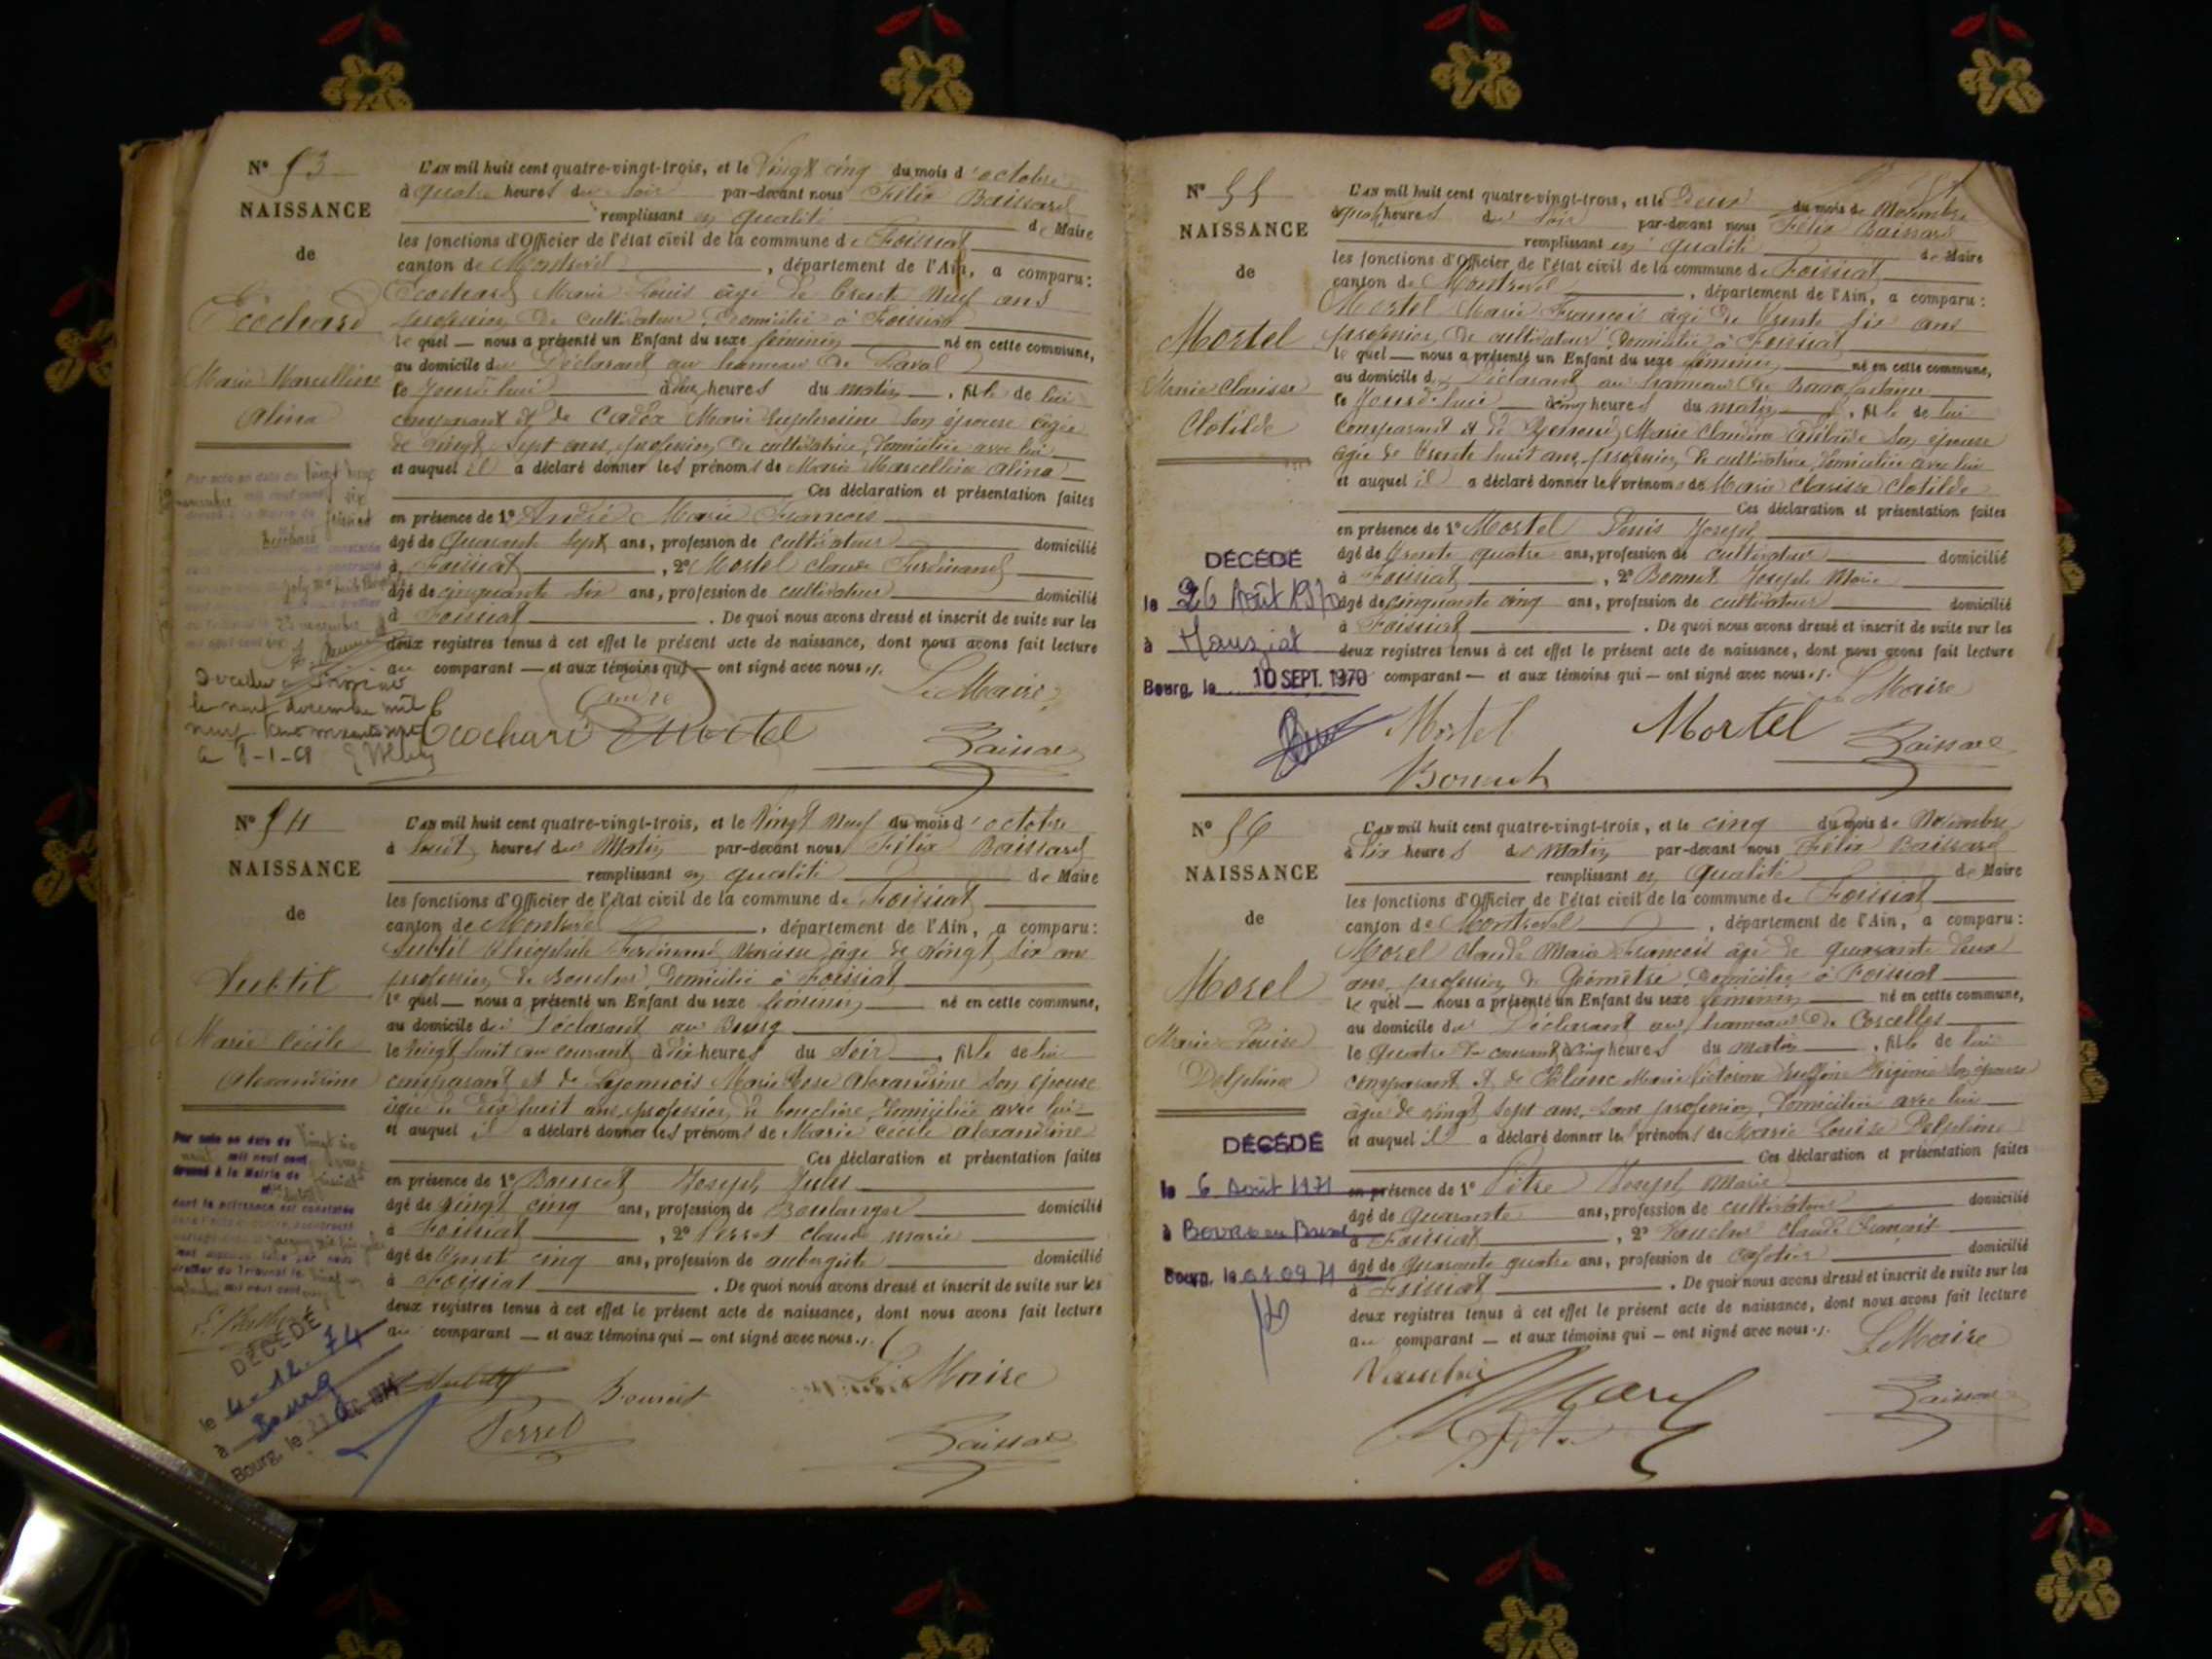 N° 53
NAISSANCE
de
Ecochard
Marie Marcelline
Alina
L'AN mil huit cent quatre-vingt-trois, et le Vingt cinq du mois d'octobre
à quatre heures du soir par-devant nous Félix Baissard
remplissant en qualité de Maire
les fonctions d'Officier de l'état civil de la commune de Foissiat
canton de Montrevel, département de l'Ain, a comparu:
Ecochard Marie Louis âgé de trente neuf ans
profession de cultivateur, Domicilié à Foissiat
le quel — nous a présenté un Enfant du sexe féminin né en cette commune,
au domicile du Déclarant au hameau de Laval
le jourd'hui à heures du matin, fille de lui
comparant et de Marie Euphrosine son épouse âgée
de vingt sept ans, profession de cultivatrice, Domiciliée avec lui
et auquel il a déclaré donner les prénoms de Marie Marcelline Alina
Ces déclaration et présentation faites
en présence de 1° André Marie François
âgé de quarante sept ans, profession de cultivateur domicilié
à Foissiat, 2° Mortel Claude Ferdinand
âgé de cinquante six ans, profession de cultivateur domicilié
à Foissiat. De quoi nous avons dressé et inscrit de suite sur les
deux registres tenus à cet effet le présent acte de naissance, dont nous avons fait lecture
au comparant — et aux témoins qui — ont signé avec nous./.
Le Maire
André
Ecochard Mortel
Baissard
Par acte en date du vingt
mil neuf cent six
le neuf décembre mil
neuf cent
8-1-61
N° 54
NAISSANCE
de
Subtil
Marie Cécile
Alexandrine
L'AN mil huit cent quatre-vingt-trois, et le Vingt neuf du mois d'octobre
à huit heures du Matin par-devant nous Félix Baissard
remplissant en qualité de Maire
les fonctions d'Officier de l'état civil de la commune de Foissiat
canton de Montrevel, département de l'Ain, a comparu:
Subtil Théophile Ferdinand Narcisse âgé de vingt six ans
profession de Boucher, Domicilié à Foissiat
le quel — nous a présenté un Enfant du sexe féminin né en cette commune,
au domicile du Déclarant au Bourg
le vingt huit du courant à dix heures du soir, fille de lui
comparant et de Lyonnois Marie Rose Alexandrine son épouse
âgée de dix huit ans, profession de bouchère, Domiciliée avec lui
et auquel il a déclaré donner les prénoms de Marie Cécile Alexandrine
Ces déclaration et présentation faites
en présence de 1° Joseph Jules
âgé de vingt cinq ans, profession de Boulanger domicilié
à Foissiat, 2° Perret Claude Marie
âgé de trente cinq ans, profession de aubergiste domicilié
à Foissiat. De quoi nous avons dressé et inscrit de suite sur les
deux registres tenus à cet effet le présent acte de naissance, dont nous avons fait lecture
au comparant — et aux témoins qui — ont signé avec nous./.
Le Maire
Subtil
Perret
Baissard
Par acte en date du vingt six
mil neuf cent
dressé à la Mairie de Foissiat
dont la naissance est constatée
DÉCÉDÉ
le 4-12-74
à Bourg
Bourg, le 23 DEC 1974
N° 55
NAISSANCE
de
Mortel
Marie Clarisse
Clotilde
L'AN mil huit cent quatre-vingt-trois, et le Deux du mois de Novembre
à quatre heures du soir par-devant nous Félix Baissard
remplissant en qualité de Maire
les fonctions d'Officier de l'état civil de la commune de Foissiat
canton de Montrevel, département de l'Ain, a comparu:
Mortel Marie François âgé de trente six ans
profession de cultivateur Domicilié à Foissiat
le quel — nous a présenté un Enfant du sexe féminin né en cette commune,
au domicile du Déclarant au hameau de
le jourd'hui à cinq heures du matin, fille de lui
comparant et de Marie Claudine son épouse
âgée de trente huit ans, profession de cultivatrice, domiciliée avec lui
et auquel il a déclaré donner les prénoms de Marie Clarisse Clotilde
Ces déclaration et présentation faites
en présence de 1° Mortel Louis Joseph
âgé de trente quatre ans, profession de cultivateur domicilié
à Foissiat, 2° Bonnet Joseph Marie
âgé de cinquante cinq ans, profession de cultivateur domicilié
à Foissiat. De quoi nous avons dressé et inscrit de suite sur les
deux registres tenus à cet effet le présent acte de naissance, dont nous avons fait lecture
comparant — et aux témoins qui — ont signé avec nous./.
Le Maire
Mortel Mortel
Baissard
Bonnet
DÉCÉDÉ
le 26 Août 1970
à Manziat
Bourg, le 10 SEPT. 1970
N° 56
NAISSANCE
de
Morel
Marie Louise
Delphine
L'AN mil huit cent quatre-vingt-trois, et le cinq du mois de Novembre
à six heures du Matin par-devant nous Félix Baissard
remplissant en qualité de Maire
les fonctions d'Officier de l'état civil de la commune de Foissiat
canton de Montrevel, département de l'Ain, a comparu:
Morel Claude Marie François âgé de quarante deux
ans, profession de Géomètre Domicilié à Foissiat
le quel — nous a présenté un Enfant du sexe féminin né en cette commune,
au domicile du Déclarant au hameau de Corcelles
le quatre du courant à cinq heures du matin, fille de lui
comparant et de Blanc Marie Victorine Virginie son épouse
âgée de vingt sept ans, sans profession, domiciliée avec lui
et auquel il a déclaré donner les prénoms de Marie Louise Delphine
Ces déclaration et présentation faites
en présence de 1° Pitre Joseph Marie
âgé de quarante ans, profession de cultivateur domicilié
à Foissiat, 2° Vaucher Claude François
âgé de quarante quatre ans, profession de cafetier domicilié
à Foissiat. De quoi nous avons dressé et inscrit de suite sur les
deux registres tenus à cet effet le présent acte de naissance, dont nous avons fait lecture
au comparant — et aux témoins qui — ont signé avec nous./.
Le Maire
Morel
Baissard
DÉCÉDÉ
le 6 Août 1971
à Bourg en Bresse
Bourg, le 01.09.71